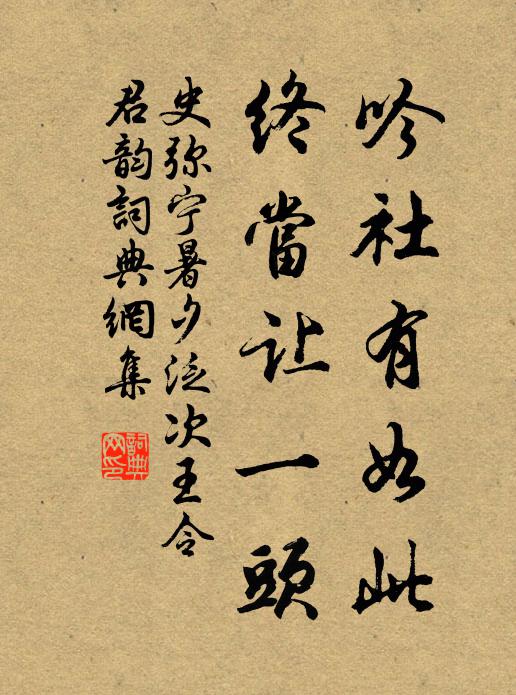 吟社有如此
終當让一頭
史弥宁暑夕泛次王令
君韵詞典網集
詞典网印